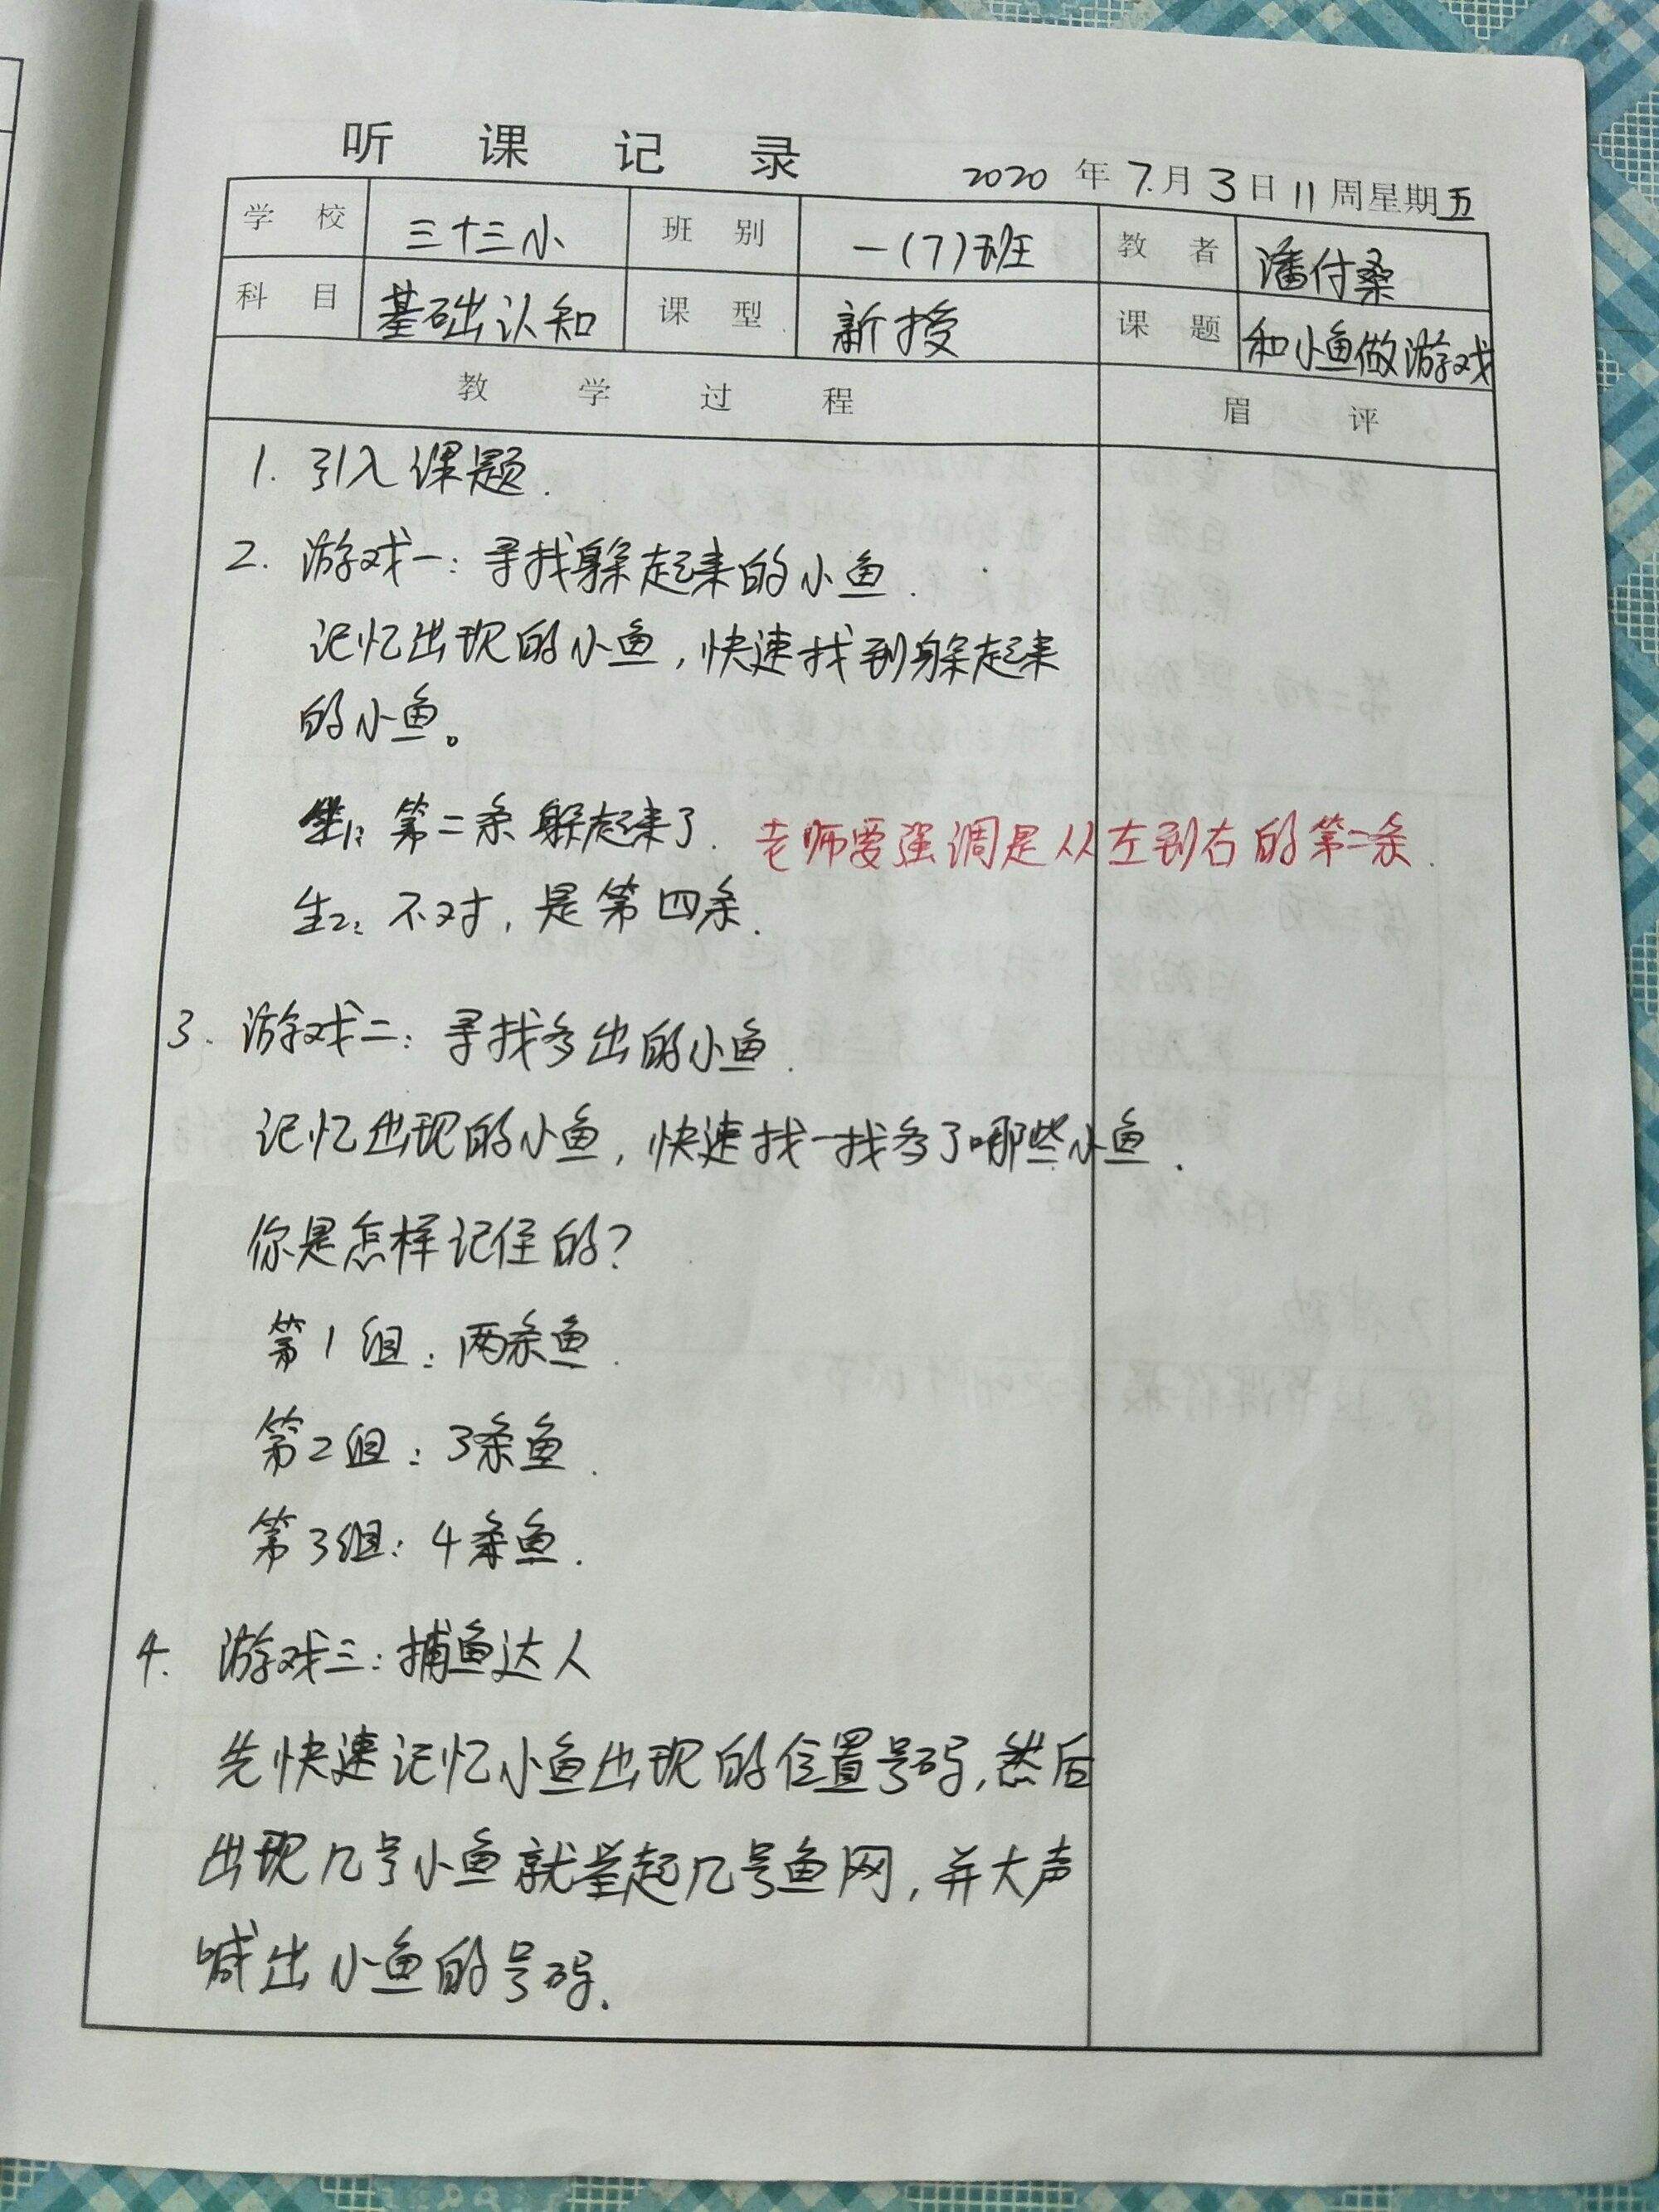 听课记录
2020年7月3日11周星期五
学校 三十三小 班别 一(7)班 教者 潘付桑
科目 基础认知 课型 新授 课题 和小鱼做游戏
教学过程 眉评
1. 引入课题.
2. 游戏一: 寻找躲起来的小鱼.
记忆出现的小鱼, 快速找到躲起来
的小鱼。
生1: 第二条躲起来了. 老师要强调是从左到右的第二条.
生2: 不对, 是第四条.
3. 游戏二: 寻找多出的小鱼.
记忆出现的小鱼, 快速找一找多了哪些小鱼.
你是怎样记住的?
第1组: 两条鱼.
第2组: 3条鱼.
第3组: 4条鱼.
4. 游戏三: 捕鱼达人
先快速记忆小鱼出现的位置号码, 然后
出现几号小鱼就举起几号鱼网, 并大声
喊出小鱼的号码.